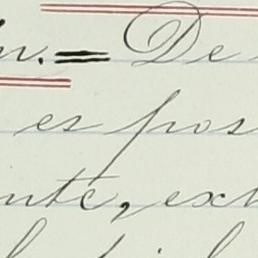 n. = De
es pos
nte, ext